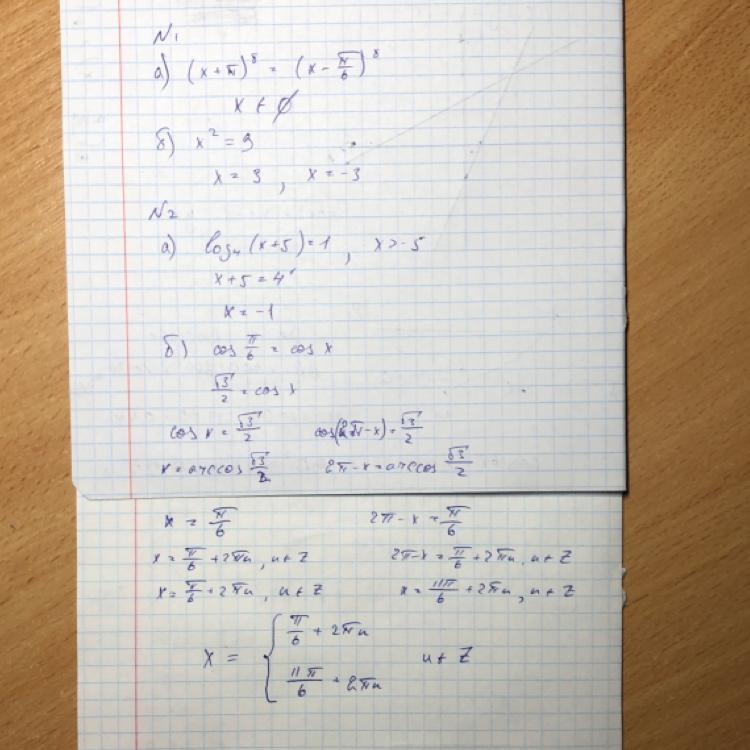 N1
а) (x + π)⁸ = (x - π/6)⁸
x ∈ ∅
б) x² = 9
x = 3 , x = -3
N2
а) log₄ (x+5) = 1 , x > -5
x+5 = 4¹
x = -1
б) cos π/6 = cos x
√3/2 = cos x
cos x = √3/2 cos(2π-x) = √3/2
x = arccos √3/2 2π-x = arccos √3/2
x = π/6 2π-x = π/6
x = π/6 + 2πn, n ∈ Z 2π-x = π/6 + 2πn, n ∈ Z
x = π/6 + 2πn, n ∈ Z x = 11π/6 + 2πn, n ∈ Z
x = { π/6 + 2πn
11π/6 + 2πn n ∈ Z